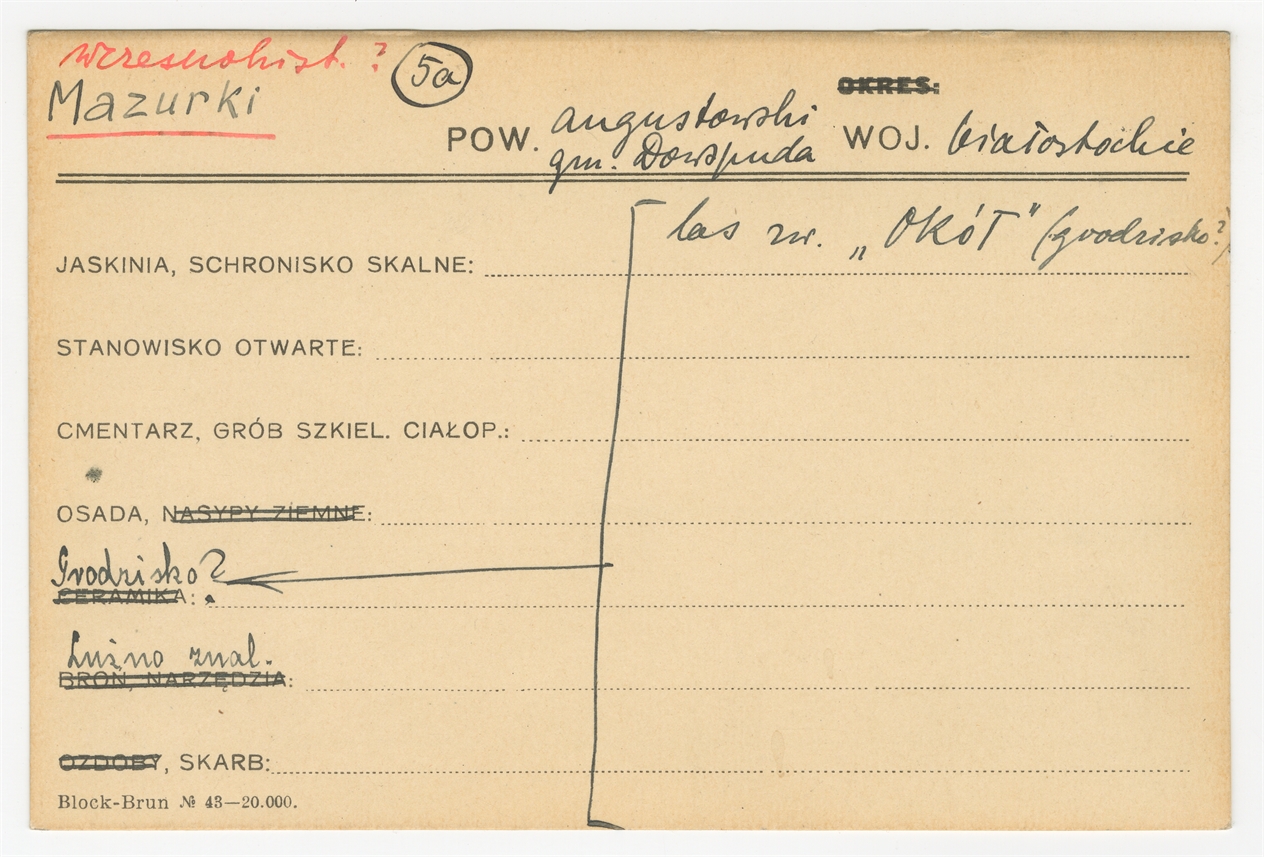 wczesnohist. ?
Mazurki
5a
OKRES:
POW. augustowski WOJ. białostockie
gm. Dowspuda
las zw. „OKÓŁ" (grodzisko?)
JASKINIA, SCHRONISKO SKALNE:
STANOWISKO OTWARTE:
CMENTARZ, GRÓB SZKIEL. CIAŁOP.:
OSADA, NASYPY ZIEMNE:
Grodzisko?
CERAMIKA:
Luźno znal.
BROŃ, NARZĘDZIA:
OZDOBY, SKARB:
Block-Brun № 43—20.000.